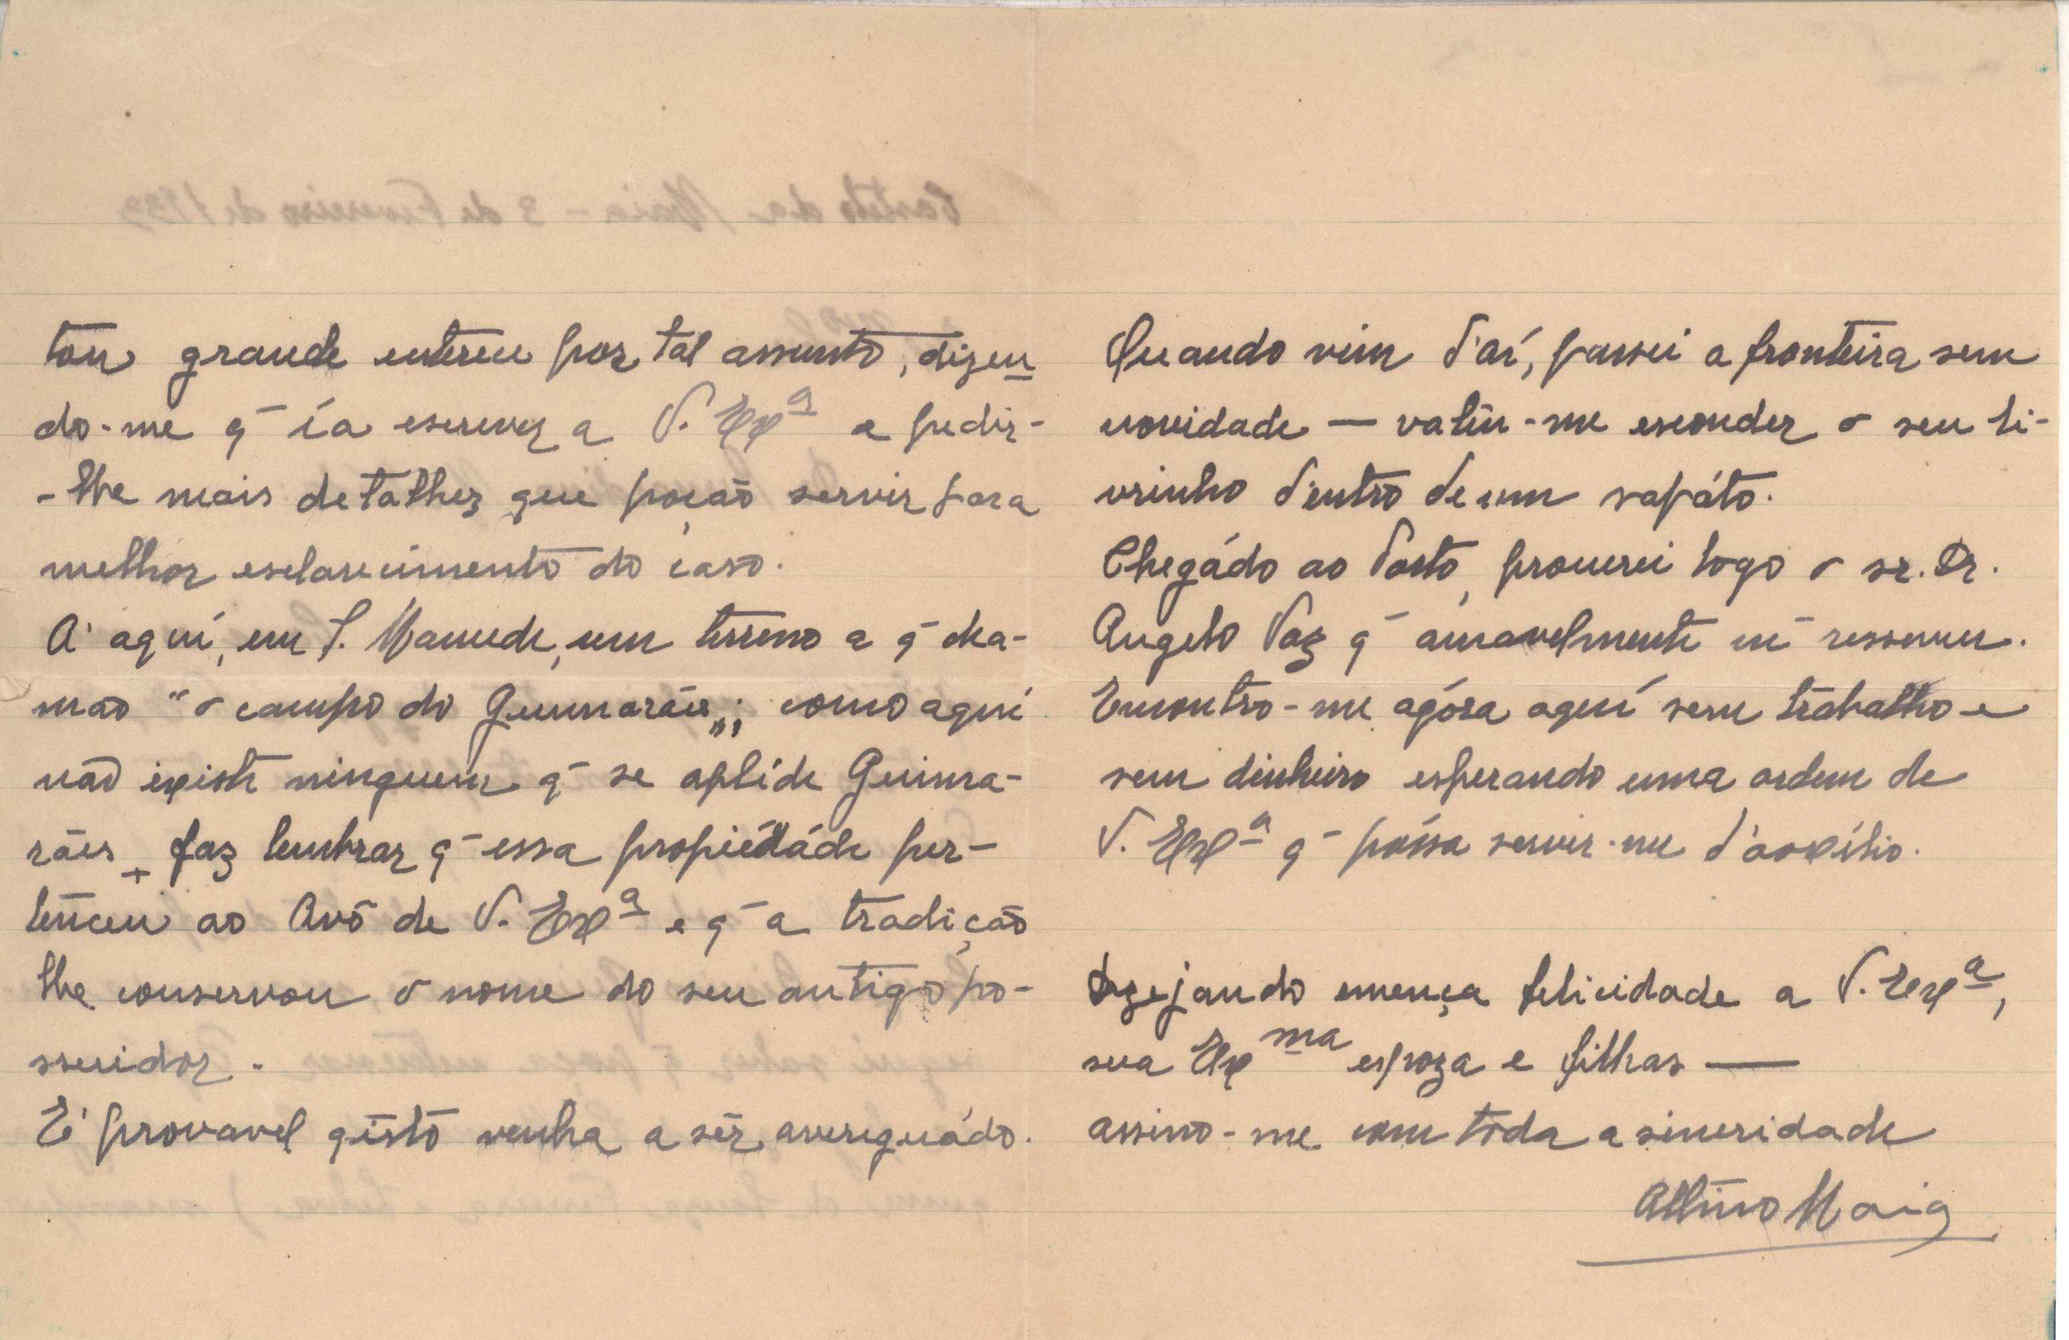 tou grande entereu por tal assunto, dizen
do-me q̄ ía escrever a V. Exª a pedir-
-lhe mais detalhez que poção servir para
melhor esclarecimento do caso.
A' aquí, em S. Mamede, um terreno a q̄ cha-
mão "o campo do Guimarães"; como aquí
não existe ninguem q̄ se aplíde Guima-
rães, faz lembrar q̄ essa propiédáde per-
tenceu ao Avô de V. Exª e q̄ a tradição
lhe conservou o nome do seu antigo po-
ssuidor.
E' provavel q̄ isto venha a sêr averiguádo.
Quando vim d'aí, passei a fronteira sem
novidade — valeu-me esconder o seu li-
vrinho dentro de um sapáto.
Chegádo ao Porto, procurei logo o sr. Dr.
Angelo Vaz q̄ amavelmente me resseveu.
Encontro-me agóra aquí sem trabalho e
sem dinheiro esperando uma ordem de
V. Exª q̄ póssa servir-me d'aoxílio.
Dezejando emença felicidade a V. Exª,
sua Exma espoza e filhas —
assino-me com toda a sinceridade
Altino Maia
Castelo da Maia - 3 de Fevereiro de 1933